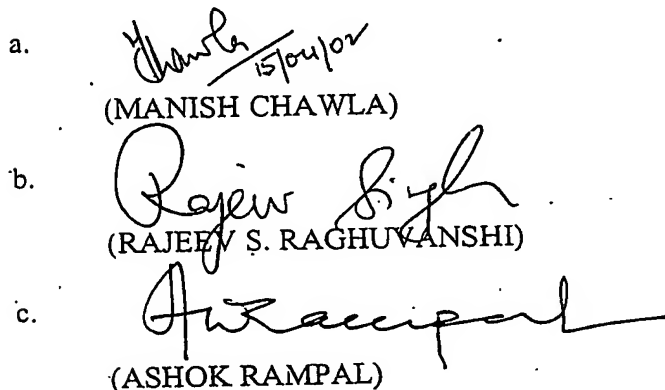 a. Chawla 15/04/02
(MANISH CHAWLA)
b. Rajeev Singh
(RAJEEV S. RAGHUVANSHI)
c. AKRampal
(ASHOK RAMPAL)